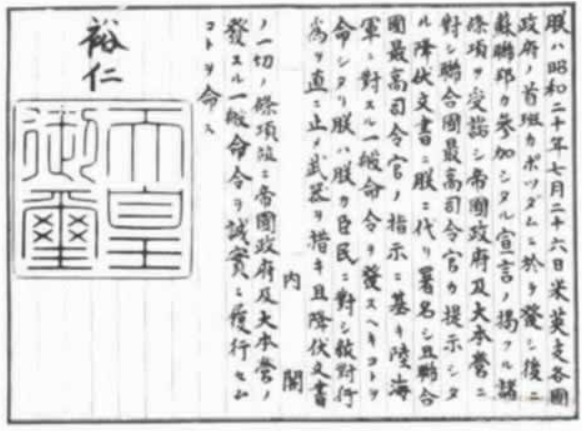 朕ハ昭和二十年七月二十六日米英支各國
政府ノ首班カポツダムニ於テ發シ後ニ
蘇聯邦カ參加シタル宣言ノ揭クル諸
條項ヲ受諾シ帝國政府及大本營ニ
對シ聯合國最高司令官カ提示シタ
ル降伏文書ニ朕ニ代リ署名シ且聯合
國最高司令官ノ指示ニ基キ陸海
軍ニ對スル一般命令ヲ發スヘキコトヲ
命シタリ朕ハ朕カ臣民ニ對シ敵對行
爲ヲ直ニ止メ武器ヲ措キ且降伏文書
內閣
ノ一切ノ條項竝ニ帝國政府及大本營ノ
發スル一般命令ヲ誠實ニ履行セム
コトヲ命ス
裕仁
天皇
御璽